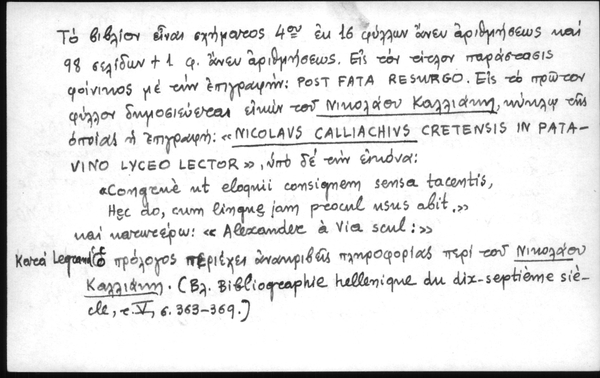 Τὸ βιβλίον εἶναι σχήματος 4ου ἐκ 16 φύλλων ἄνευ ἀριθμήσεως καὶ
98 σελίδων + 1 φ. ἄνευ ἀριθμήσεως. Εἰς τὸν τίτλον παράστασις
φοίνικος μὲ τὴν ἐπιγραφήν: POST FATA RESURGO. Εἰς τὸ πρῶτον
φύλλον δημοσιεύεται εἰκὼν τοῦ Νικολάου Καλλιάκη, κύκλῳ τῆς
ὁποίας ἡ ἐπιγραφή: «NICOLAVS CALLIACHIVS CRETENSIS IN PATA-
VINO LYCEO LECTOR», ὑπὸ δὲ τὴν εἰκόνα:
«Congruè ut eloquii consignem sensa tacentis,
Hęc do, cum linguę jam procul usus abit.»
καὶ κατωτέρω: «Alexander à Via scul:»
Κατὰ Legrand ὁ πρόλογος περιέχει ἀνακριβεῖς πληροφορίας περὶ τοῦ Νικολάου
Καλλιάκη. (Βλ. Bibliographie hellenique du dix-septième siè-
cle, τ. V, σ. 363-369.)